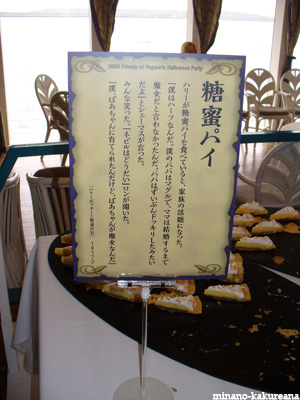 2005 Friends of Hogwarts Halloween Party
糖蜜パイ
ハリーが糖蜜パイを食べていると、家族の話題になった。
「僕はハーフなんだ。僕のパパはマグルで、ママは結婚するまで
魔女だと言わなかったんだ。パパはずいぶんドッキリしたみたい
だよ」とシェーマスが言った。
みんな笑った。「ネビルはどうだい」ロンが聞いた。
「僕、ばあちゃんに育てられたんだけど、ばあちゃんが魔女なんだ」
minano-kakureana